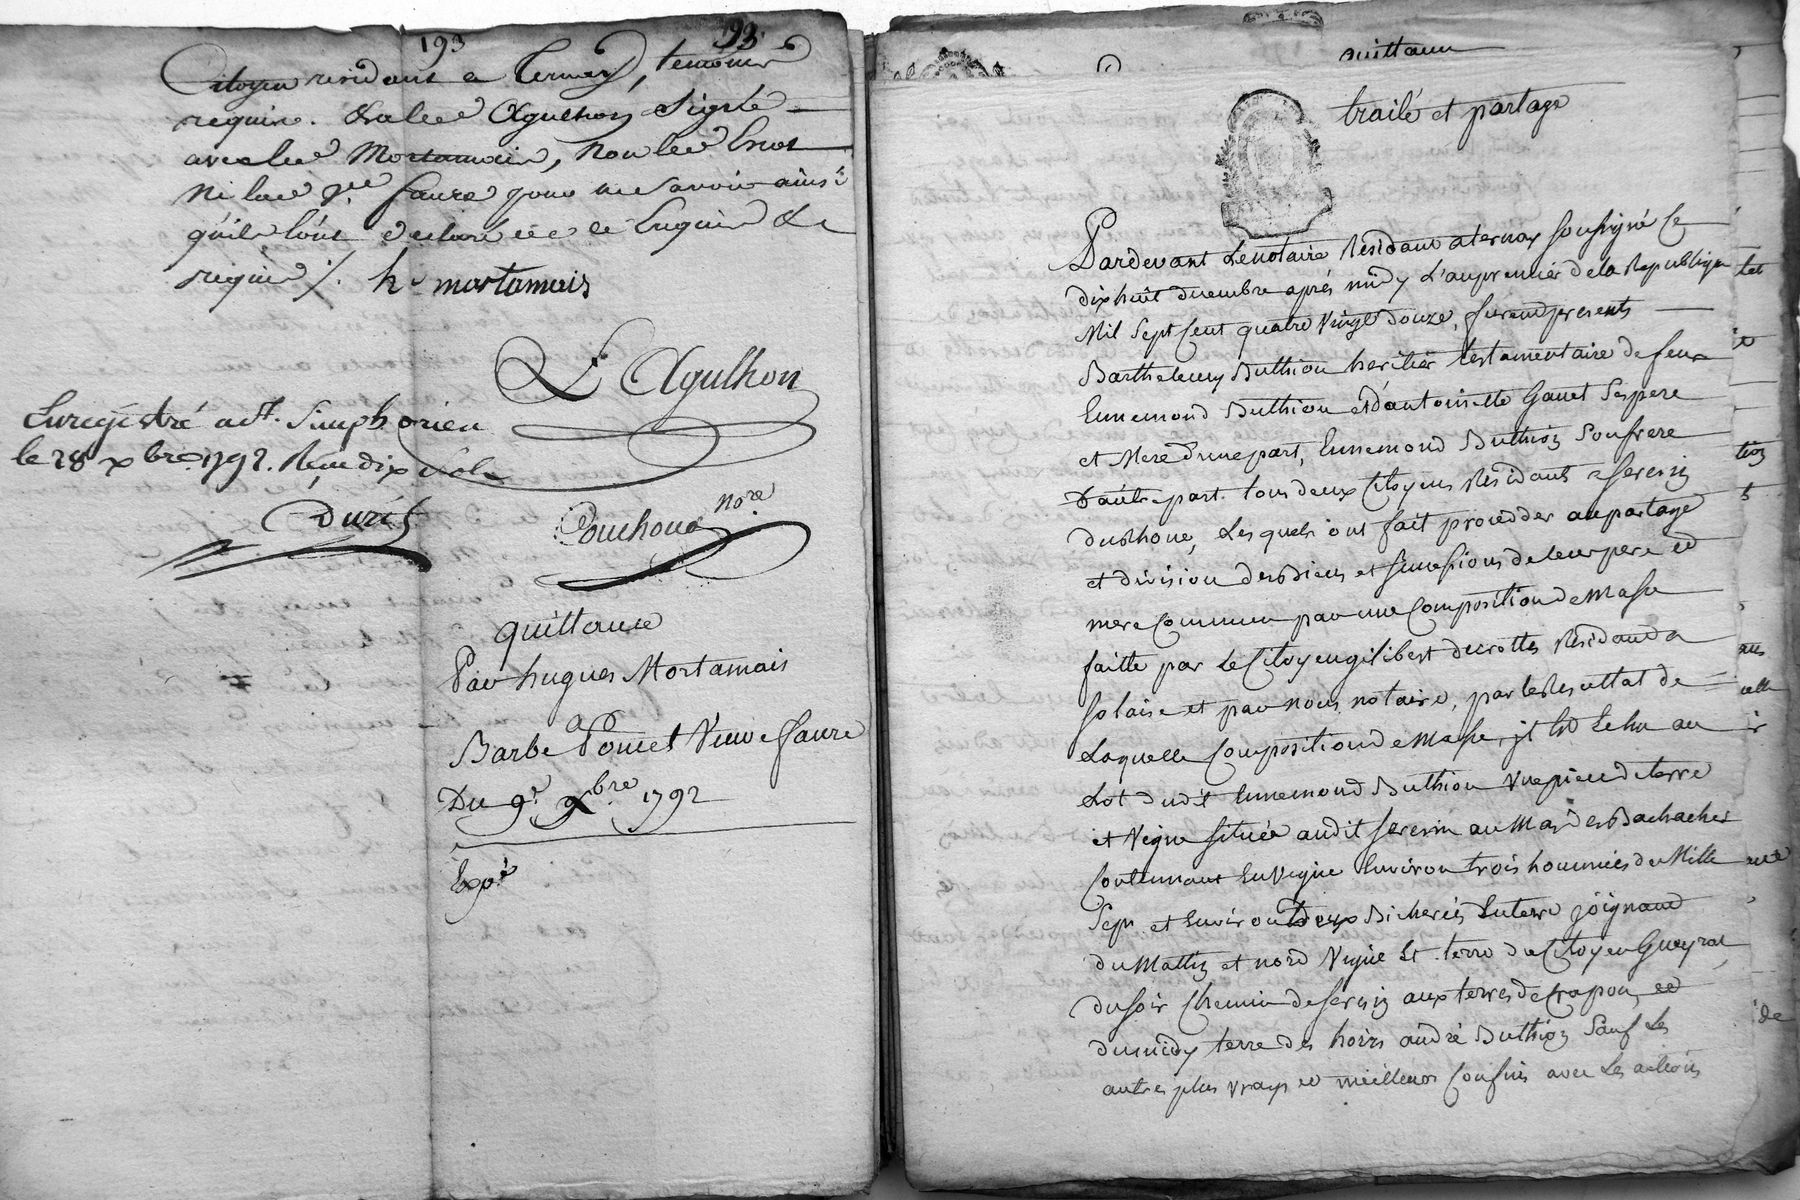 193
93
Citoyen residant a Ternay, temoins
requis. Ledit Agulhon Signé
avec led Mortamais, non led
Ni lad ve. faure pour ne Savoir ainsi
quils l'ont declaré de ce Enquis &
requis /. h. mortamais
L Agulhon
Enregistré a St. Simphorien
le 28 xbre 1792. Reçu dix sols
Duret
Pouchon nore.
quittance
Par hugues Mortamais
a
Barbe Poncet Veuve faure
Du 9e. xbre 1792
Expé
quittance
traité et partage
Pardevant Le notaire Résidant aternay soussigné Ce
dixhuit decembre après midy L'an premier de la Republique
Mil Sept Cent quatre Vingt douze, furent presents
Barthelemy Buthion heritier testamentaire de feux
Ennemond Buthion et d'antoinette Ganet Ses pere
et Mere D'une part, Ennemond Buthion Son frere
D'autre part. tous deux Citoyens Résidants a Serezin
du Rhone, Lesquels ont fait proceder au partage
et division des Biens et successions de leur pere et
mere Commun par une Composition de Masse
faitte par Le Citoyen gilibert decrottes Résidand a
solaise et par nous notaire, par le Resultat de
Laquelle Composition de Masse, jl est Echu au
Lot dudit Ennemond Buthion Une piece de terre
et Vigne située audit serezin au Mas des Bachaches
Contenant En Vigne Environ trois hommées de Mille
Sept et Environ Deux Bicherées En terre joignant
du Mattin et nord Vigne Et terre du Citoyen Gueyrat,
du soir Chemin de serezin aux terres de Crapon, et
du midy terre des hoirs andré Buthion Sauf Les
autres plus Vrays et meilleurs Confins avec Les actions